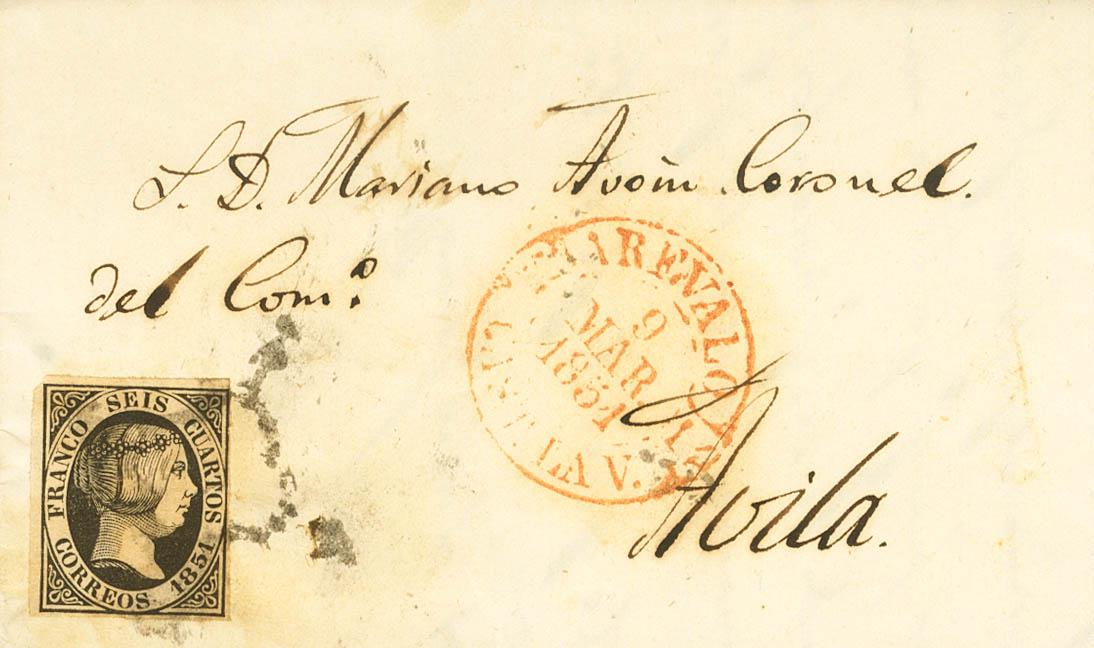 S. D. Mariano Avoin Coronel.
del Com.º
AREVALO
9
MAR
1851
LA V.
Avila.
FRANCO SEIS CUARTOS
CORREOS 1851